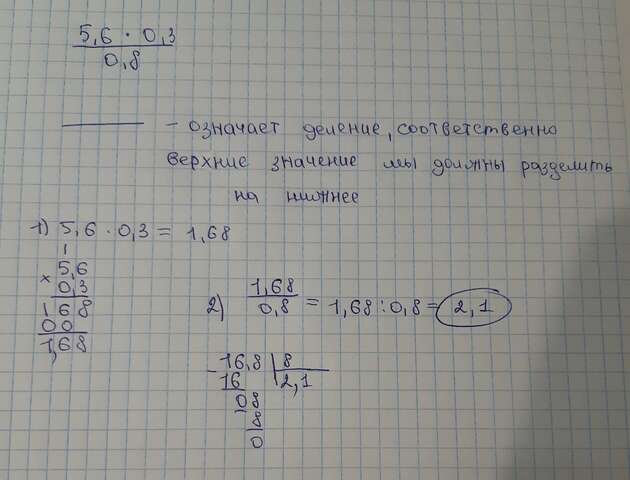 5,6 · 0,3
0,8
— означает деление, соответственно
верхние значение мы должны разделить
на нижнее
1) 5,6 · 0,3 = 1,68
1
× 5,6
0,3
168
00
1,68
2) 1,68
0,8
= 1,68 : 0,8 = 2,1
- 16,8 | 8
16 2,1
- 08
8
0